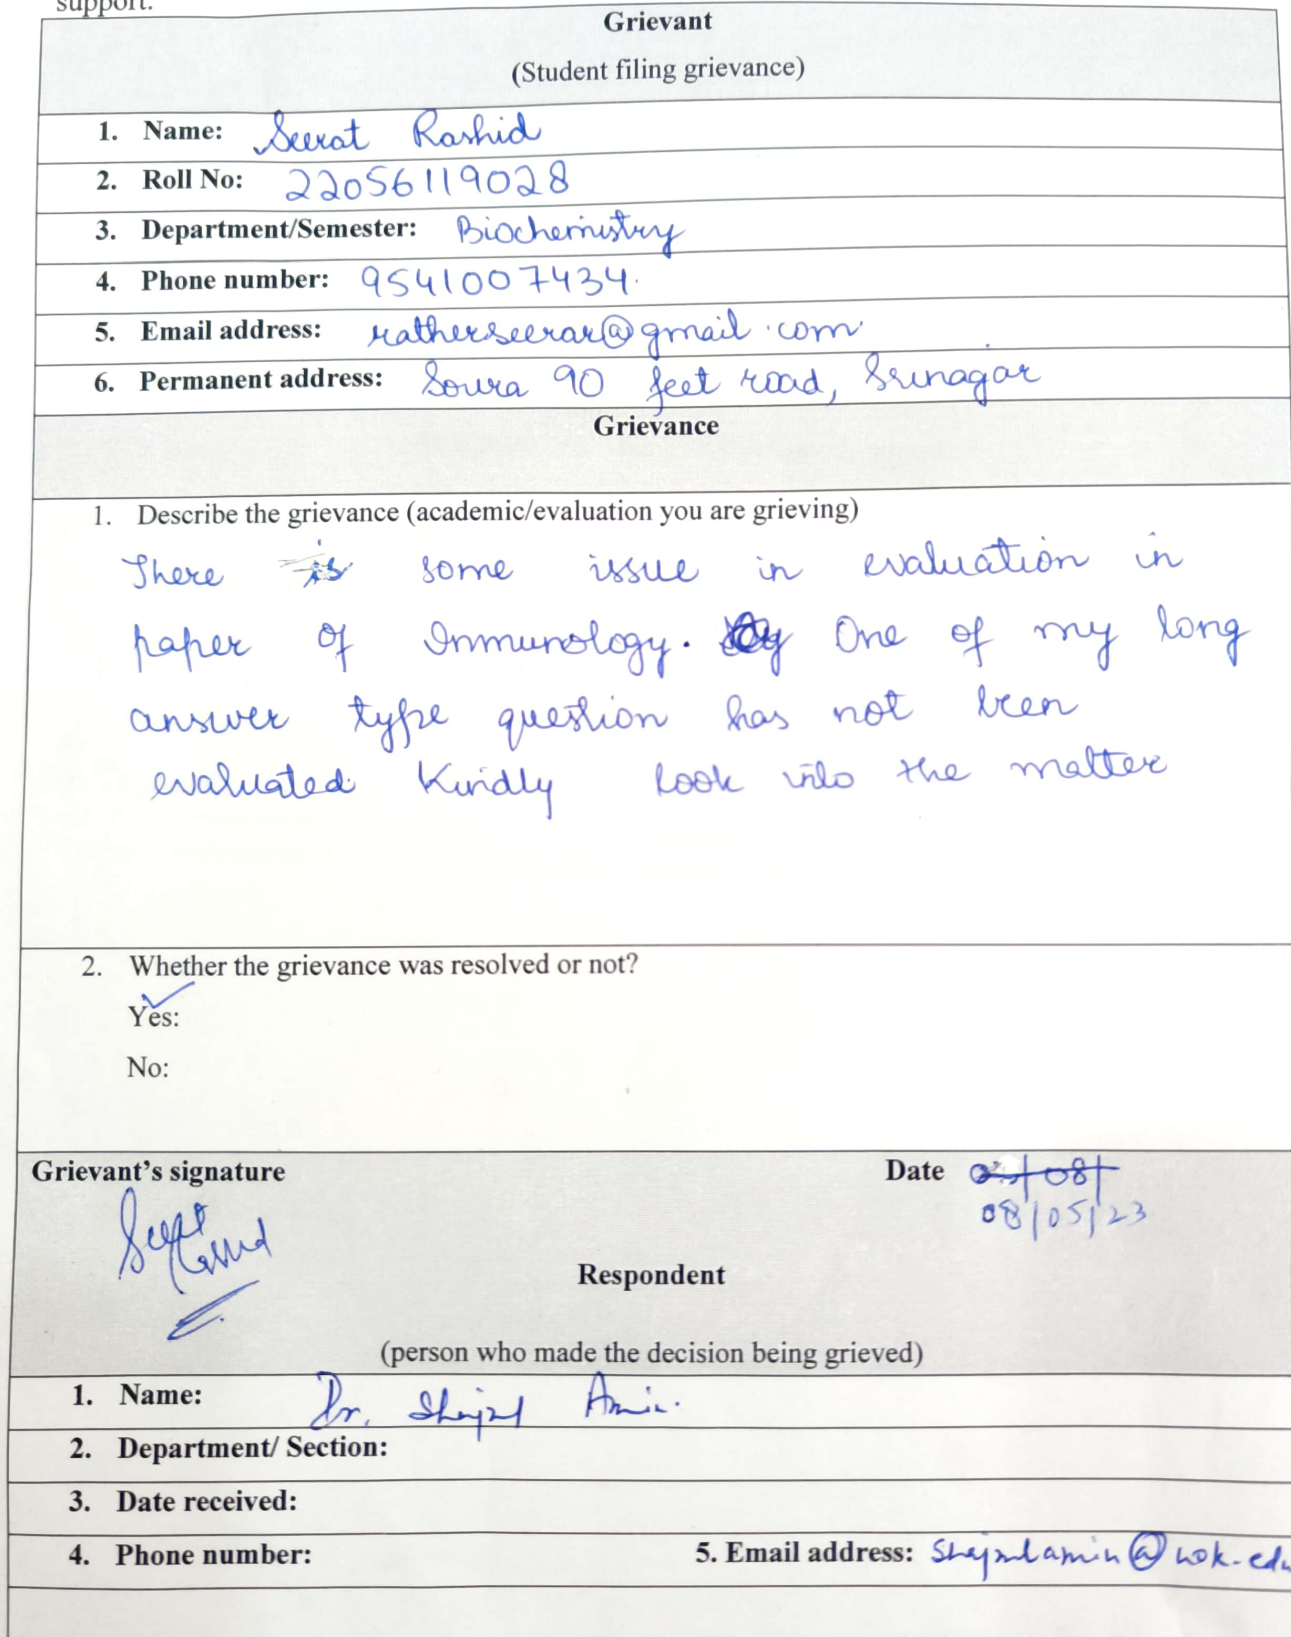 support.
Grievant
(Student filing grievance)
1. Name: Seerat Rashid
2. Roll No: 22056119028
3. Department/Semester: Biochemistry
4. Phone number: 9541007434.
5. Email address: ratherseerar@gmail.com
6. Permanent address: Soura 90 feet road, Srinagar
Grievance
1. Describe the grievance (academic/evaluation you are grieving)
There is some issue in evaluation in
paper of Inmunology. One of my long
answer type question has not been
evaluated. Kindly look into the matter
2. Whether the grievance was resolved or not?
Yes: ✓
No:
Grievant's signature Date
08/05/23
Respondent
(person who made the decision being grieved)
1. Name: Dr. Amin.
2. Department/ Section:
3. Date received:
4. Phone number: 5. Email address: